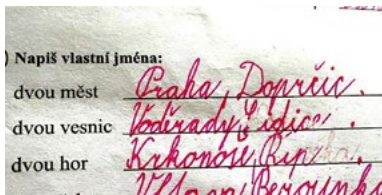 ) Napiš vlastní jména:
dvou měst Praha, Doprčic.
dvou vesnic Voděrady, Lidice.
dvou hor Krkonoše, Říp
Berounk